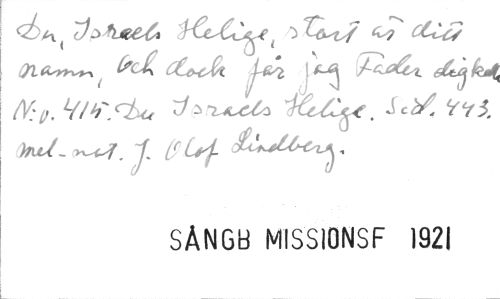 Du, Israels Helige, stort är ditt
namn, Och dock får jag Fader dig kalla
N:o. 415. Du Israels Helige. Sid. 443.
mel-not. J. Olof Lindberg.
SÅNGB MISSIONSF 1921